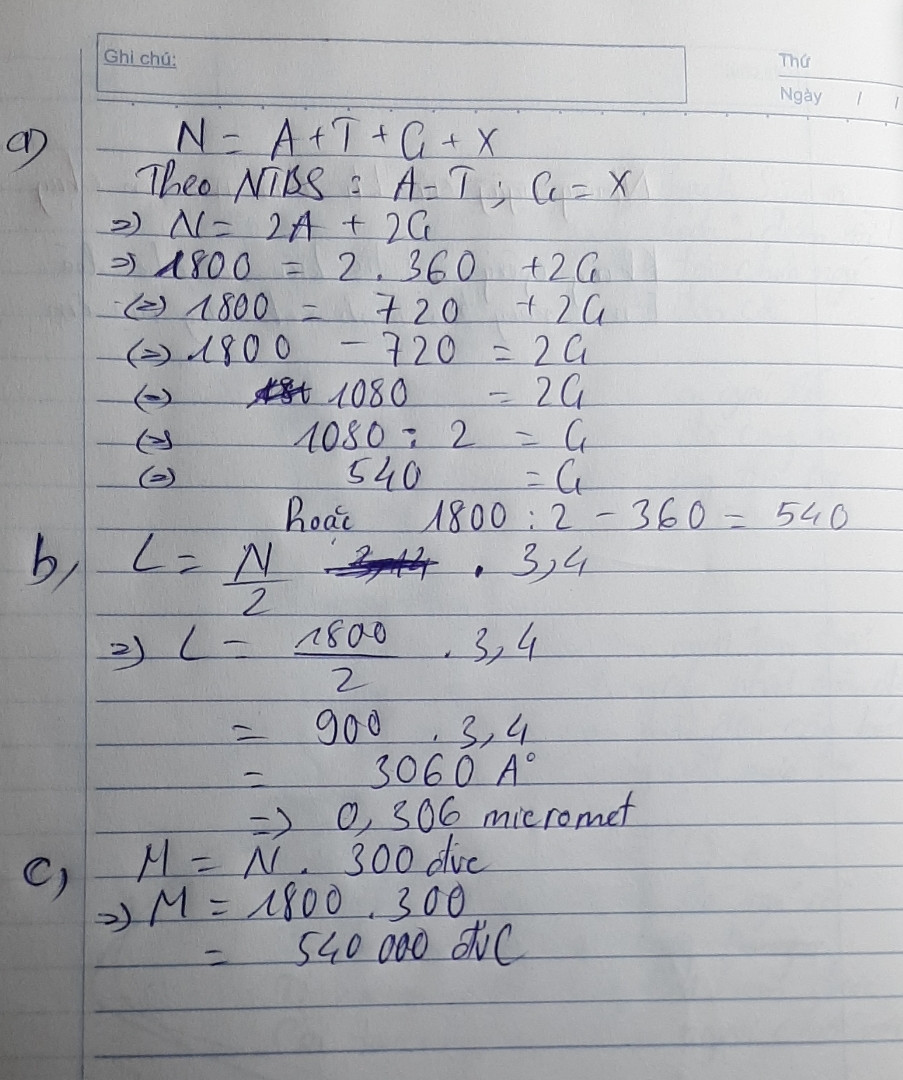 Ghi chú:
Thứ
Ngày / /
a) N = A + T + G + X
Theo NTBS : A = T ; G = X
=> N = 2A + 2G
=> 1800 = 2 . 360 + 2G
(=) 1800 = 720 + 2G
(=) 1800 - 720 = 2G
(=) 1080 = 2G
(=) 1080 : 2 = G
(=) 540 = G
hoặc 1800 : 2 - 360 = 540
b, L = N/2 . 3,4
=> L = 1800/2 . 3,4
= 900 . 3,4
= 3060 A°
=> 0,306 micromet
c, M = N . 300 đvc
=> M = 1800 . 300
= 540 000 đvC